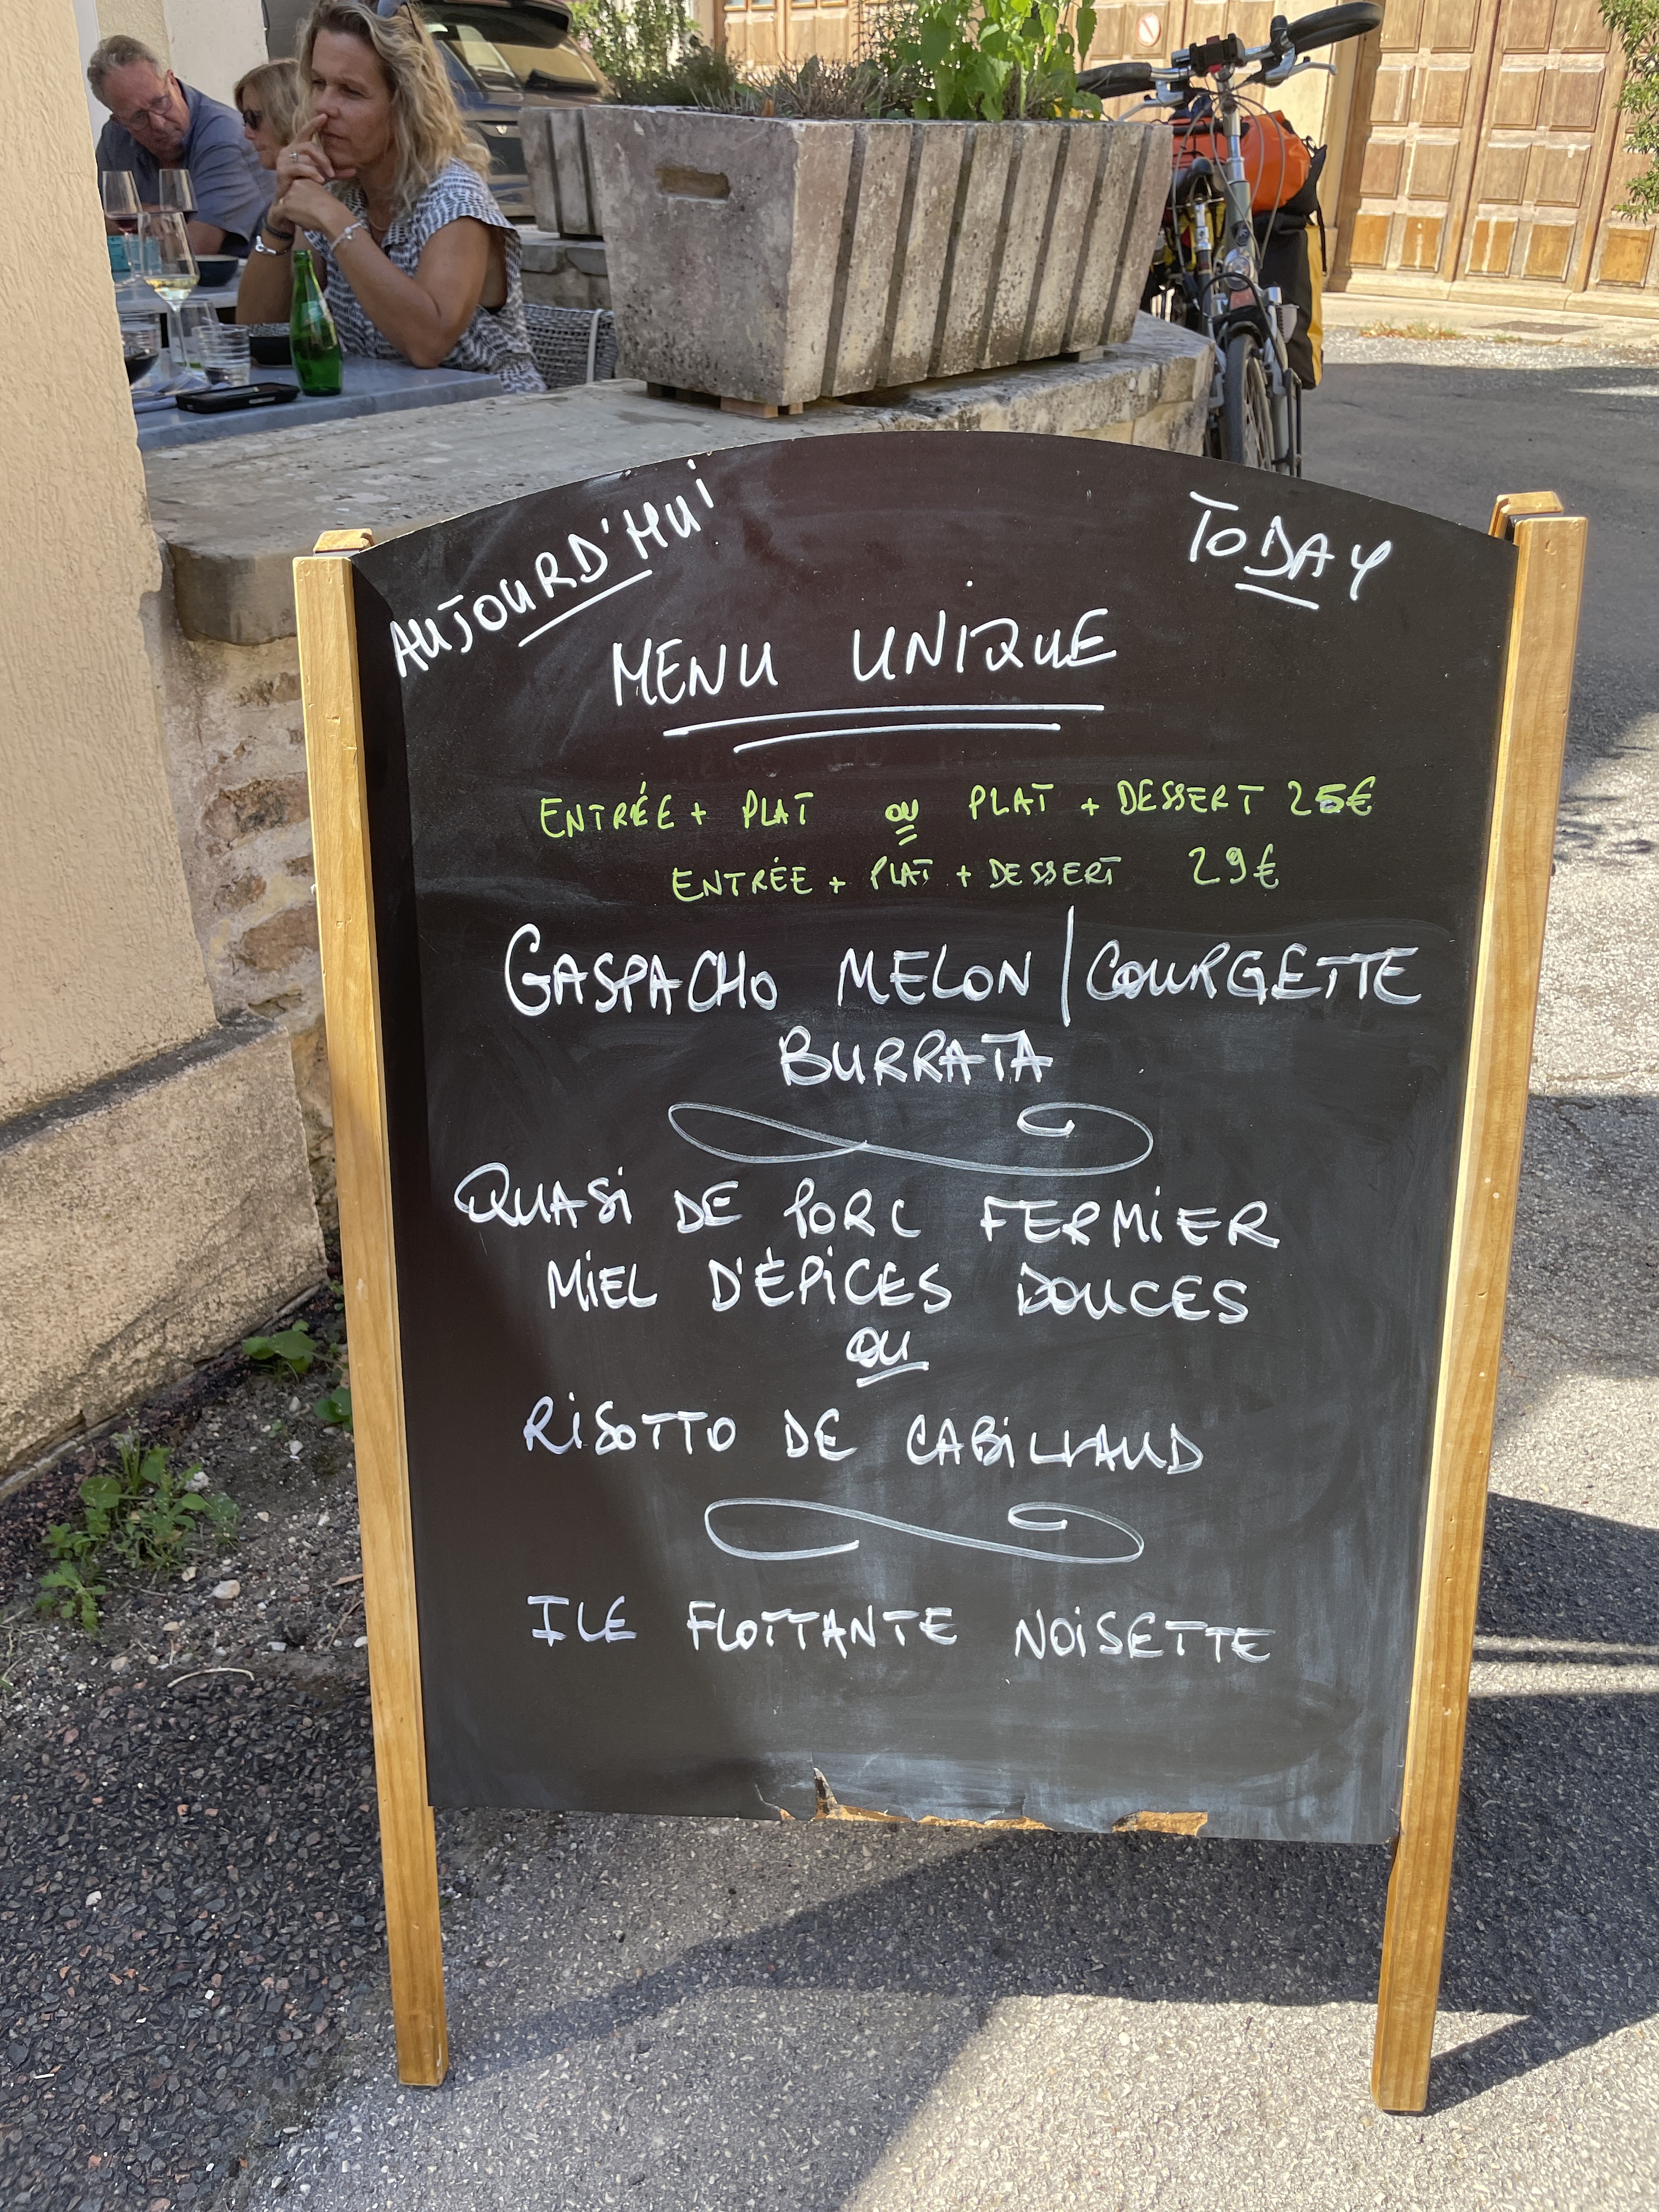 AUJOURD'HUI
TODAY
MENU UNIQUE
ENTRÉE + PLAT OU PLAT + DESSERT 25€
ENTRÉE + PLAT + DESSERT 29€
GASPACHO MELON / COURGETTE
BURRATA
QUASI DE PORC FERMIER
MIEL D'ÉPICES DOUCES
OU
RISOTTO DE CABILLAUD
ILE FLOTTANTE NOISETTE